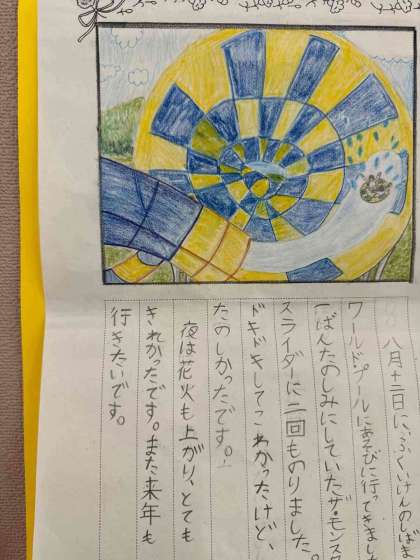 八月十二日に、ふくいけんのしば
ワールドプールにあそびに行ってきまし
一ばんたのしみにしていたザ・モンス
スライダーに二回ものりました。
ドキドキしてこわかったけど、
たのしかったです。
夜は花火も上がり、とても
きれかったです。また来年も
行きたいです。